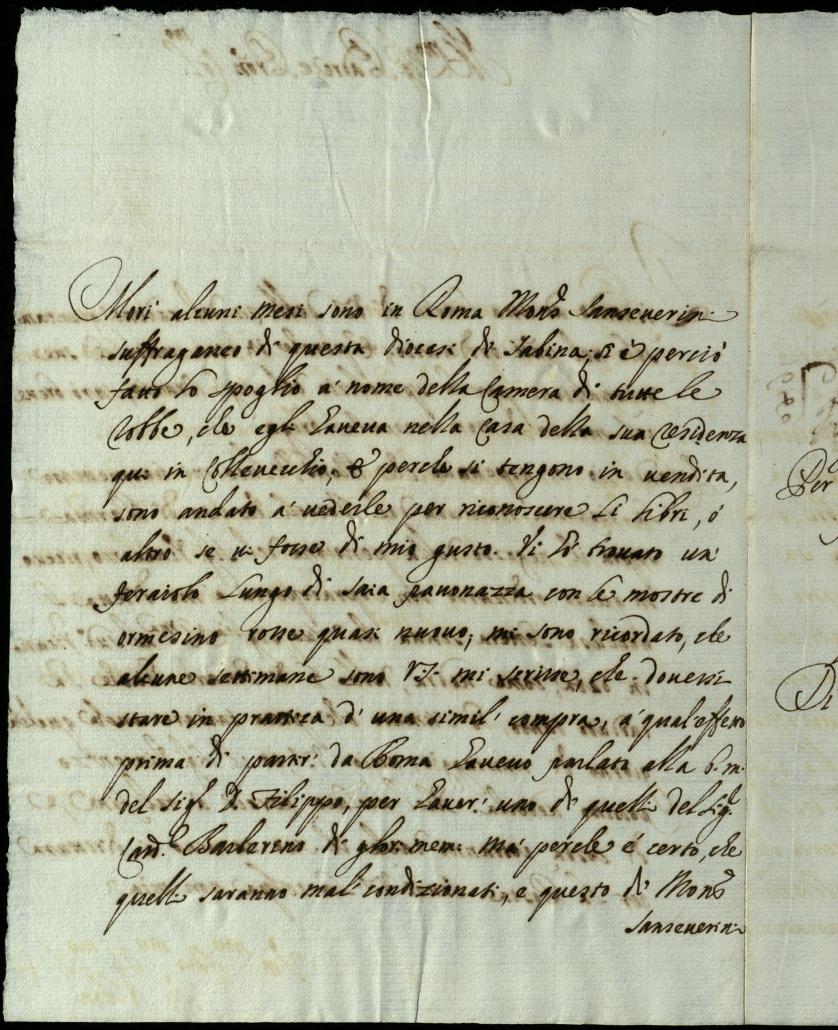 Morì alcuni mesi sono in Roma Mons.r Sanseverini
suffraganeo di questa diocesi di Sabina, si è perciò
fatto lo spoglio à nome della Camera di tutte le
robbe, che egli haveva nella Casa della sua residenza
qui in Collevecchio, e perche si tengono in vendita,
sono andato à vederle per riconoscere li libri, ò
altro se vi fosse di mio gusto. Vi hò trovato un
feraiolo lungo di saia pavonazza con le mostre di
ormesino rosse quasi nuovo; mi sono ricordato, che
alcune settimane sono V.S. mi scrisse, che dovessi
stare in prattica d'una simil' compra, à qual'effetto
prima di partir' da Roma havevo parlato alla b.m.
del Sig.r D. Filippo, per haver' uno di quelli del Sig.r
Card.l Barberino di glor: mem: mà perche è certo, che
quelli saranno mal'condizionati, e questo di Mons.r
Sanseverini
Per
Di